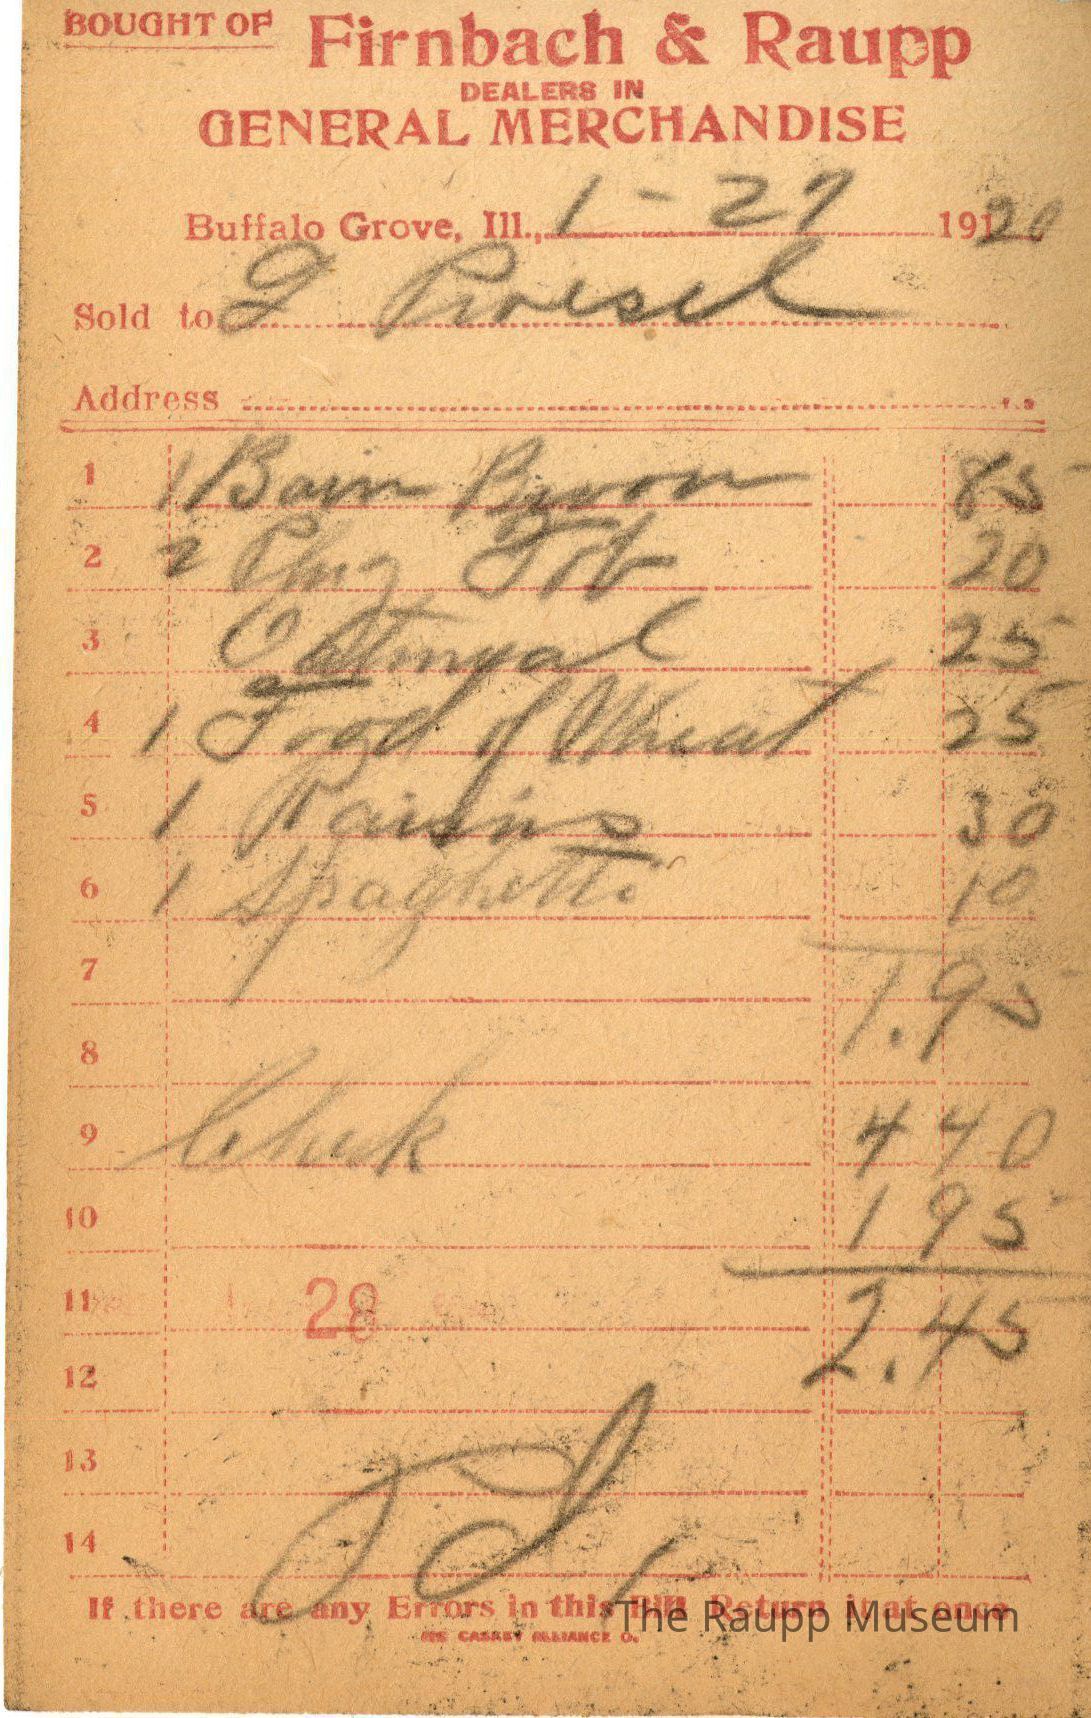 BOUGHT OF Firnbach & Raupp
DEALERS IN
GENERAL MERCHANDISE
Buffalo Grove, Ill., 1-27 1920
Sold to
Address
1 1 Barn Broom 85
2 2 Tob 20
3 Oatmeal 25
4 1 Food of Wheat 25
5 1 Raisins 30
6 1 Spaghetti 10
7 1.95
8
9 Check 4 40
10 1 95
11 28 2.45
12
13 Pd
14
If there are any Errors in this Bill Return it at once
The Raupp Museum